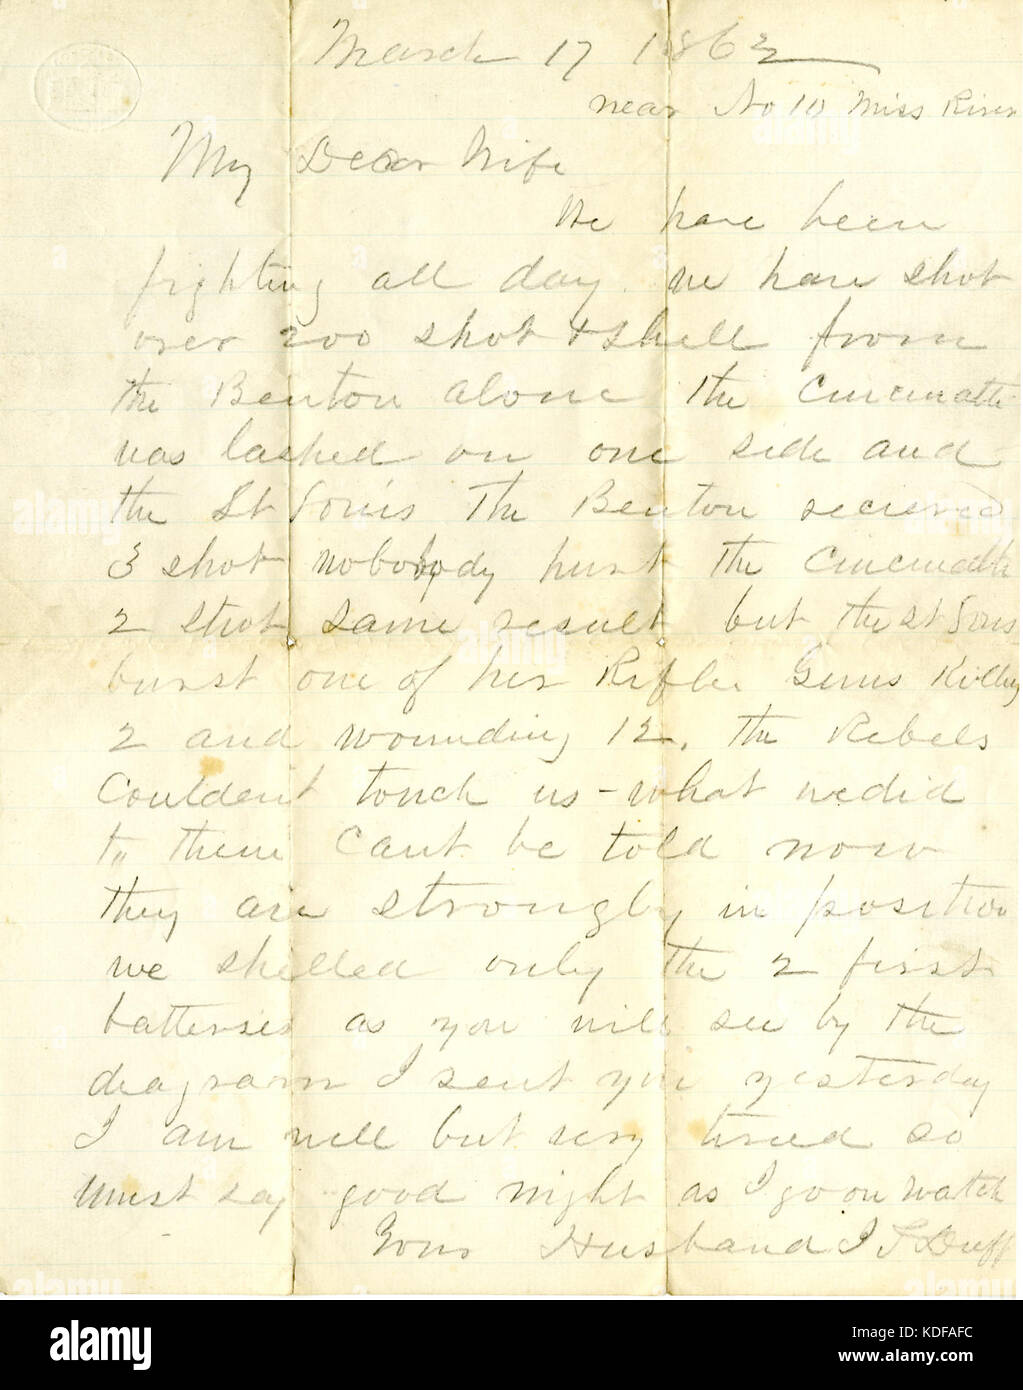 March 17 1862
near No 10 Miss River
My Dear Wife
We have been
fighting all day. we have shot
over 200 shot & shell from
the Benton alone the Cincinatti
was lashed on one side and
the St Louis The Benton recieved
3 shot nobobody hurt the Cincinatti
2 shot same result but the St Louis
burst one of her Rifle Guns Killing
2 and wounding 12. the Rebels
Couldent touch us - what we did
to them Cant be told now
they are strongly in position
we shelled only the 2 first
batterses as you will see by the
diagram I sent you yesterday
I am well but very tired so
must say good night as I go on watch
Your Husband J S Duff
alamy
Image ID: KDFAFC
www.alamy.com